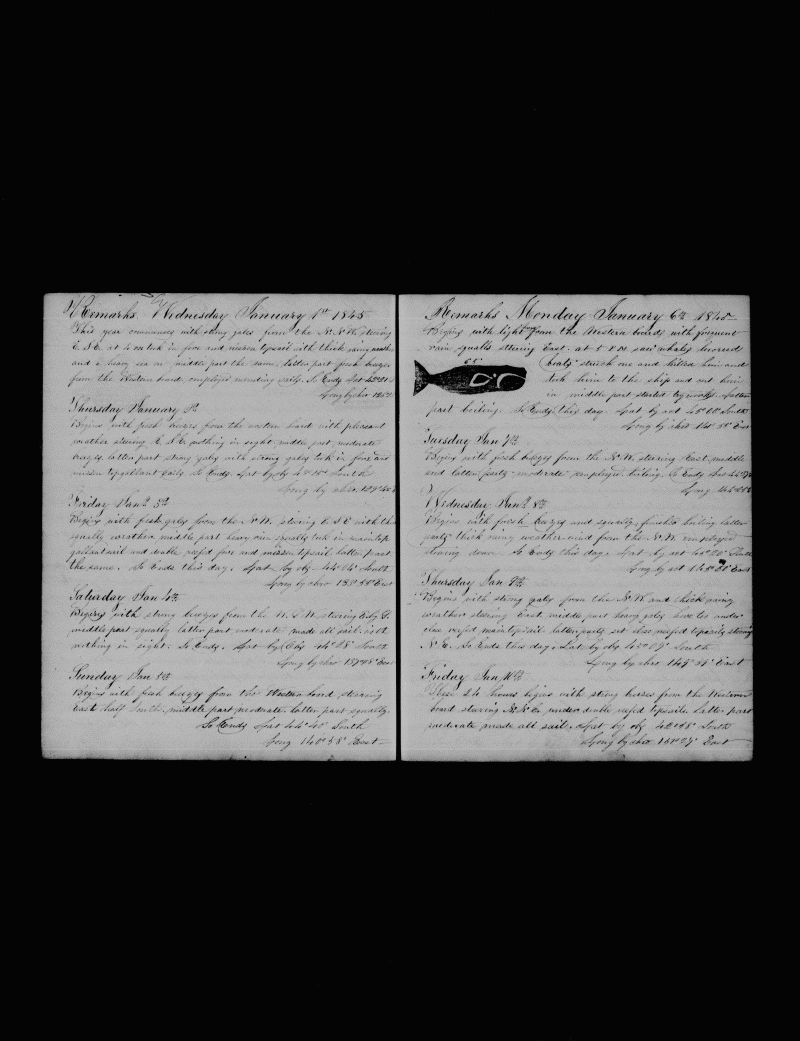 Remarks Wednesday January 1st 1845
This year commences with strong gales from the N.N.W. steering
E.S.E. at 4 took in fore and mizen topsail with thick rainy weather
and a heavy sea on middle part the same, latter part fresh breezes
from the Western board employed mending sails. So Ends Lat
Long by chro
Thursday January 2d
Begins with fresh breezes from the western board with pleasant
weather steering E.S.E. nothing in sight middle part moderate
breezes latter part strong gales with strong gales took in fore and
mizen topgallant sails So Ends. Lat by South
Long by chro.
Friday Jan. 3d
Begins with fresh gales from the N.W. steering E.S.E with thick
squally weather middle part heavy rain squally took in main top
gallant sail and double reefed fore and mizen topsail latter part
the same. So Ends this day. Lat by ob South
Long by chro East
Saturday Jan 4th
Begins with strong breezes from the W.S.W. steering E by S.
middle part squally latter part moderate made all sail
nothing in sight. So Ends. Lat by Obs 44° 28' South
Long by chro East
Sunday Jan 5th
Begins with fresh breezes from the Western board steering
East half South. middle part moderate latter part squally.
So Ends Lat 44° 40' South
Long 140° 58' East
Remarks Monday January 6th 1845
Begins with light from the Western board with frequent
rain squalls steering East. at 5 P.M. saw whales lowered
boats struck one and killed him and
took him to the ship and cut him
in middle part started tryworks. latter
part boiling. So Ends this day. Lat by act South
Long by chro East
Tuesday Jan 7th
Begins with fresh breezes from the N.W. steering East, middle
and latter parts moderate employed boiling. So Ends Lat
Long
Wednesday Jan. 8th
Begins with fresh breezes and squally, finished boiling latter
parts thick rainy weather wind from the N.W. employed
stowing down. So Ends this day. Lat by act South
Long by act East
Thursday Jan 9th
Begins with strong gales from the N.W. and thick rainy
weather steering East. middle part heavy gales hove to under
close reefed main topsail. latter parts set close reefed topsails steering
N.E. So Ends this day. Lat by obs South
Long by chro East
Friday Jan 10th
These 24 hours begins with strong breezes from the Western
board steering N.N.E. under double reefed topsails. latter part
moderate made all sail. Lat by ob South
Long by chro East